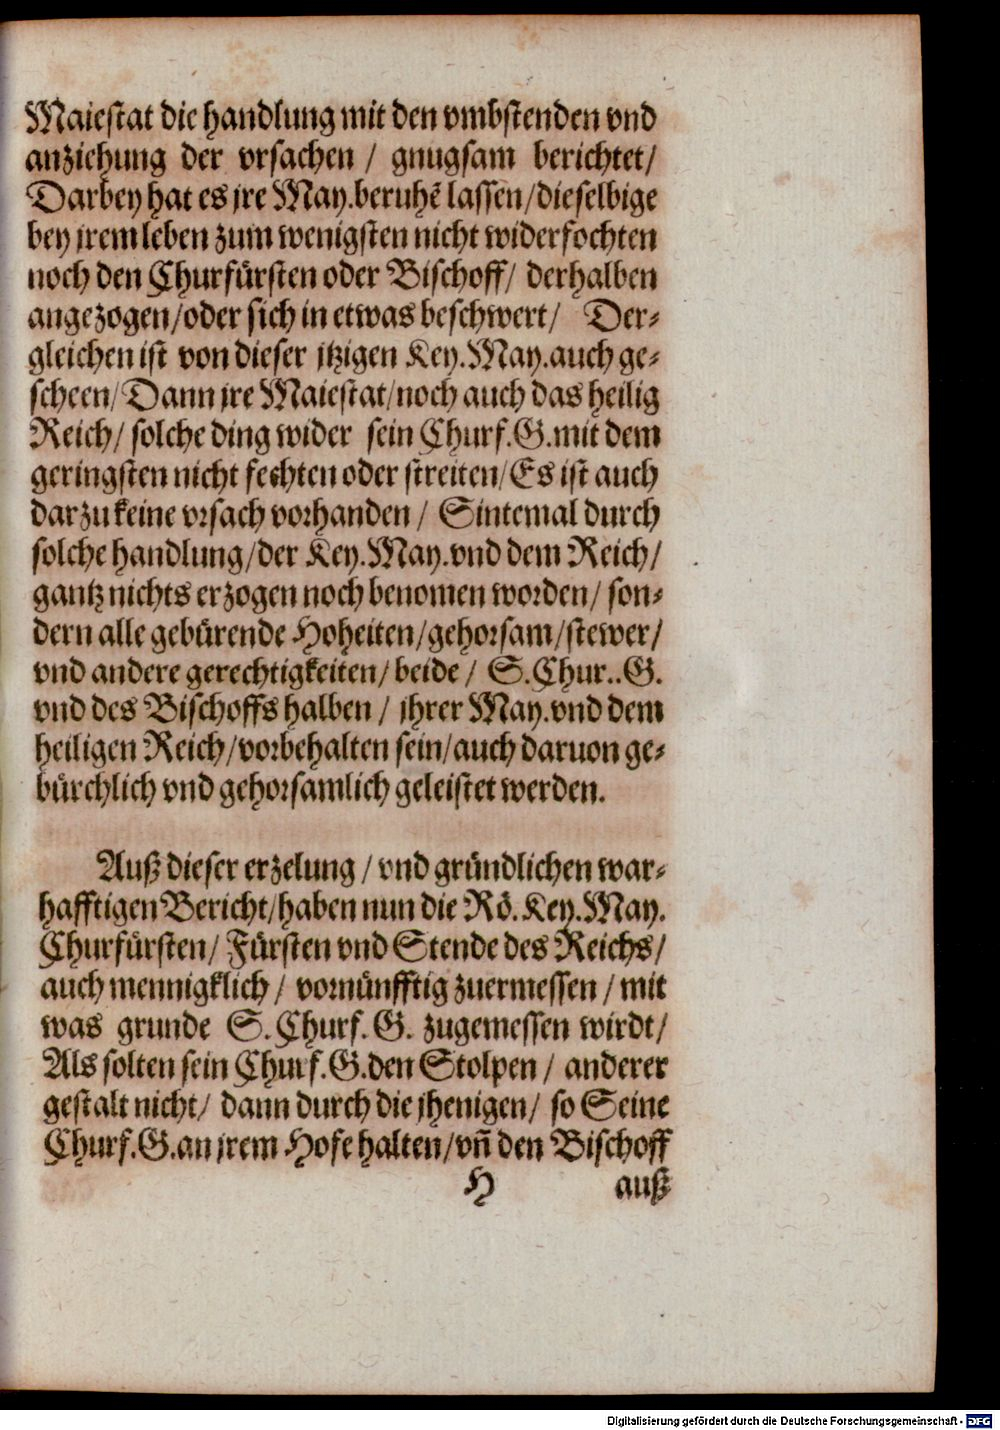 Maiestat die handlung mit den vmbstenden vnd
anziehung der vrsachen / gnugsam berichtet/
Darbey hat es jre May.beruhē lassen/dieselbige
bey jrem leben zum wenigsten nicht widerfochten
noch den Churfürsten oder Bischoff/ derhalben
angezogen/oder sich in etwas beschwert/ Der-
gleichen ist von dieser jtzigen Key.May.auch ge-
scheen/Dann jre Maiestat/noch auch das heilig
Reich/ solche ding wider sein Churf.G.mit dem
geringsten nicht fechten oder streiten/Es ist auch
darzu keine vrsach vorhanden / Sintemal durch
solche handlung/der Key.May.vnd dem Reich/
gantz nichts erzogen noch benomen worden/ son-
dern alle gebürende Hoheiten/gehorsam/stewer/
vnd andere gerechtigkeiten/ beide / S.Chur..G.
vnd des Bischoffs halben / jhrer May.vnd dem
heiligen Reich/vorbehalten sein/auch daruon ge-
bürchlich vnd gehorsamlich geleistet werden.
Auß dieser erzelung / vnd gründlichen war-
hafftigen Bericht/haben nun die Rö. Key.May.
Churfürsten/ Fürsten vnd Stende des Reichs/
auch mennigklich / vornünfftig zuermessen / mit
was grunde S. Churf. G. zugemessen wirdt/
Als solten sein Churf.G.den Stolpen / anderer
gestalt nicht/ dann durch die jhenigen/ so Seine
Churf.G.an jrem Hofe halten/vñ den Bischoff
H auß
Digitalisierung gefördert durch die Deutsche Forschungsgemeinschaft - DFG